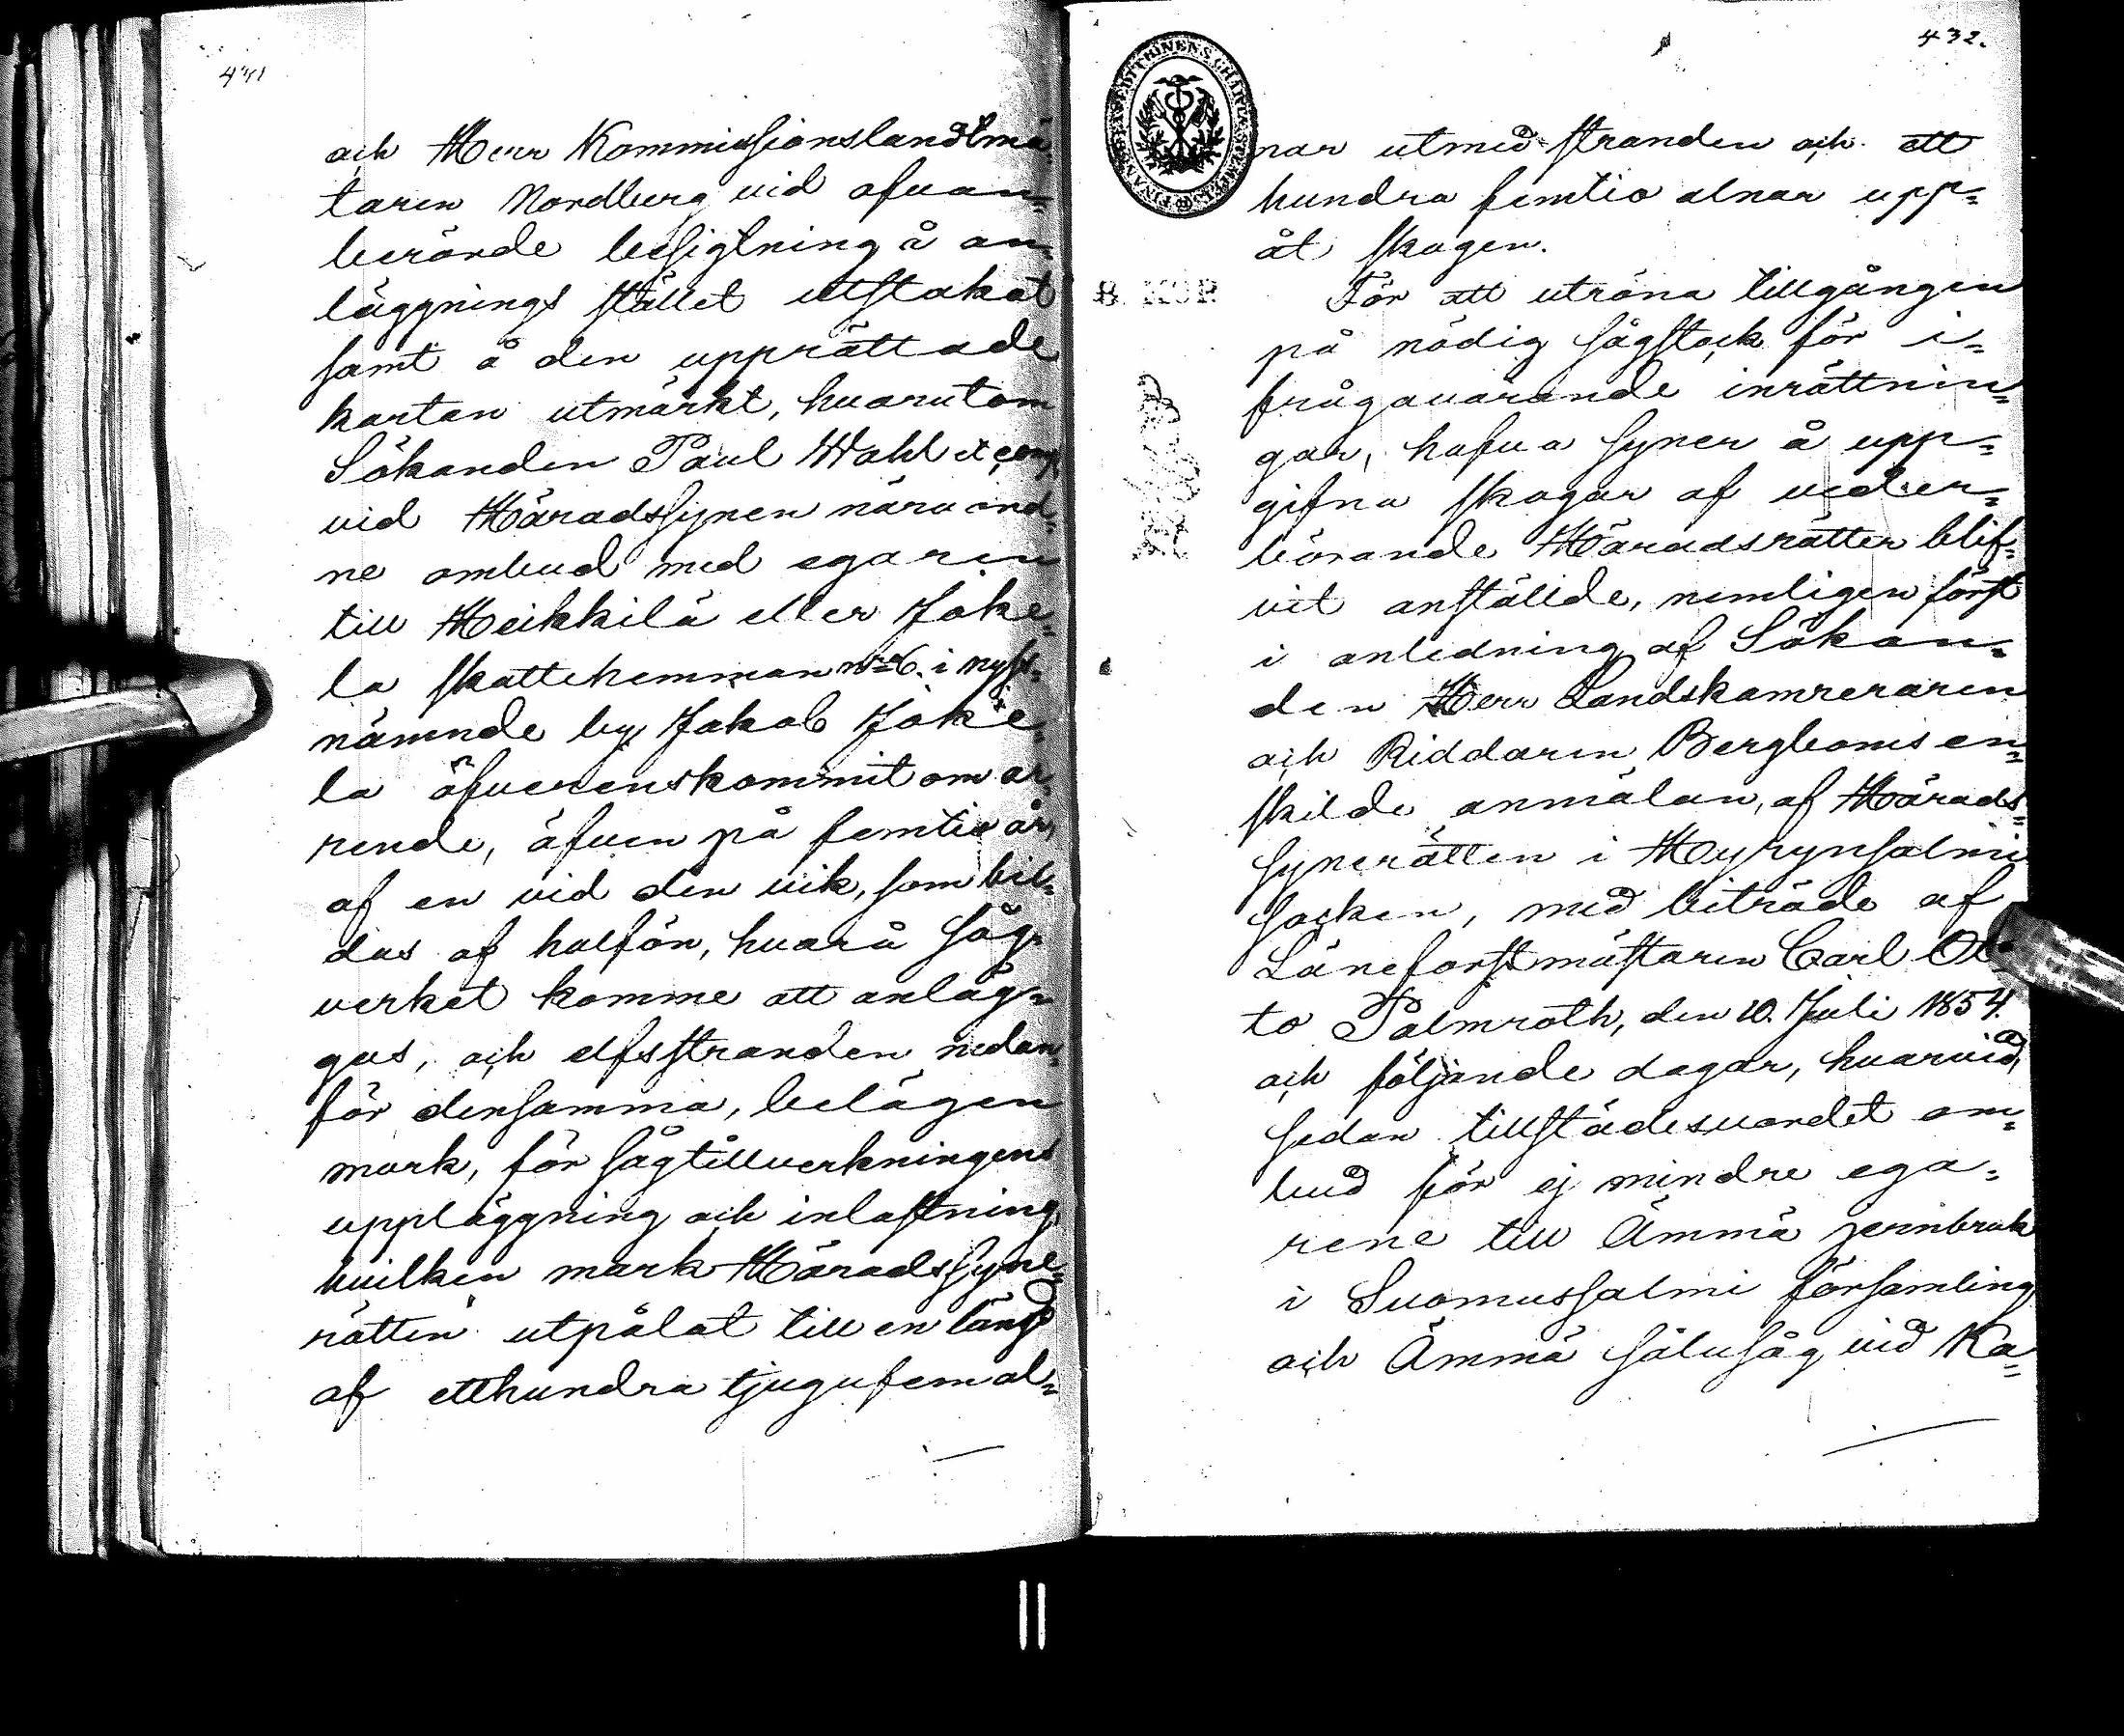 431
och Herr Kommissionslandtmä-
taren Nordberg vid ofvan-
berörde besigtning å an-
läggnings stället utstakat
samt å den upprättade
kartan utmärkt, hvarutom
Sökanden Paul Wahl et comp.
vid Häradssynen närvarand-
ne ombud med egaren
till Heikkilä eller Joke-
la skattehemman No 6. i nyss-
nämnde by Jakob Joke-
la öfverenskommit om ar-
rende, äfven på femtio år,
af en vid den vik, som bil-
das af halfön, hvarå såg-
verket komme att anläg-
gas, och elfsstranden nedan-
för densamma, belägen
mark, för sågtillverkningens
uppläggning och inlastning
hvilken mark Häradssyne-
rätten utpålat till en längd
af etthundra tjugufem al-
432.
FINANS EXPEDITIONENS CHARTÆ STEMPEL
8. KOP
nar utmed stranden och ett
hundra femtio alnar upp-
åt skogen.
För att utröna tillgången
på nödig sågstock för i-
frågavarande inrättnin-
gar, hafva syner å upp-
gifna skogar af veder-
börande Häradsrätter blif-
vit anställde, nemligen först
i anledning af Sökan-
den Herr Landskamreraren
och Riddaren Bergboms en-
skilde anmälan, af Härads-
synerätten i Hyrynsalmi
socken, med biträde af
Länsforstmästaren Carl Ot-
to Palmroth, den 10. Juli 1854.
och följande dagar, hvarvid,
sedan tillstädesvordet om-
bud för ej mindre ega-
rene till Ämmä jernbruk
i Suomussalmi församling
och Ämmä sålusåg vid Ka-